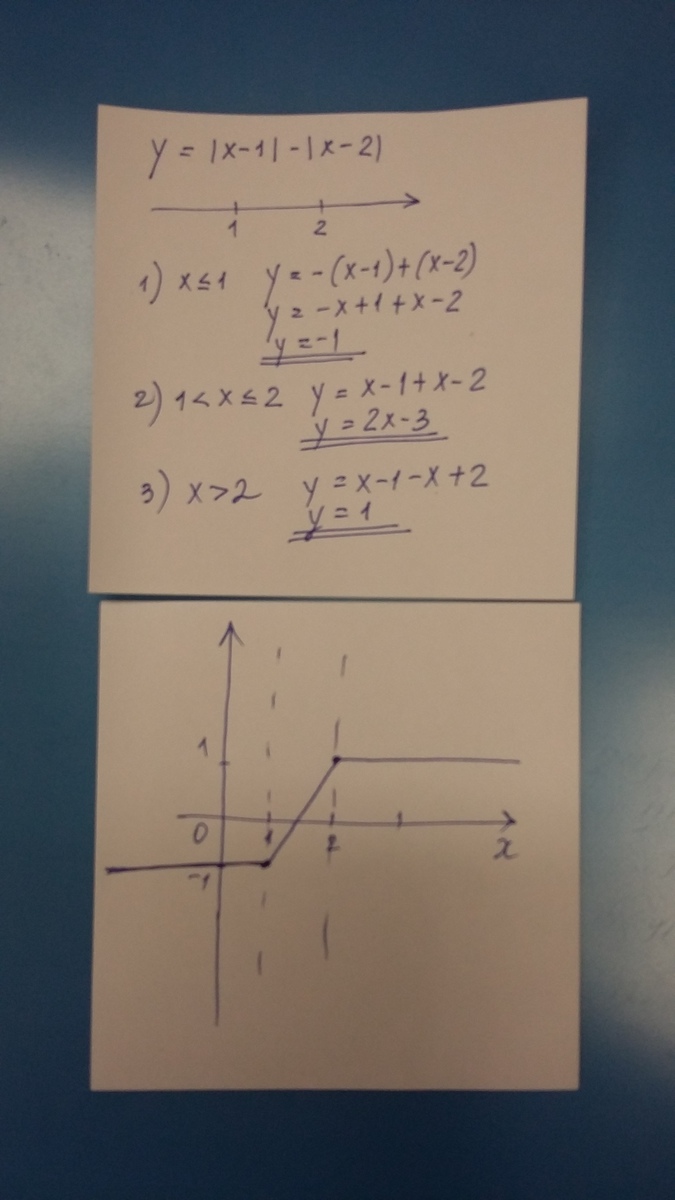 y = |x-1| - |x-2|
1 2
1) x≤1 y = -(x-1)+(x-2)
y = -x+1+x-2
y = -1
2) 1 < x ≤ 2 y = x-1+x-2
y = 2x-3
3) x>2 y = x-1-x+2
y = 1
1
0 1 2 x
-1